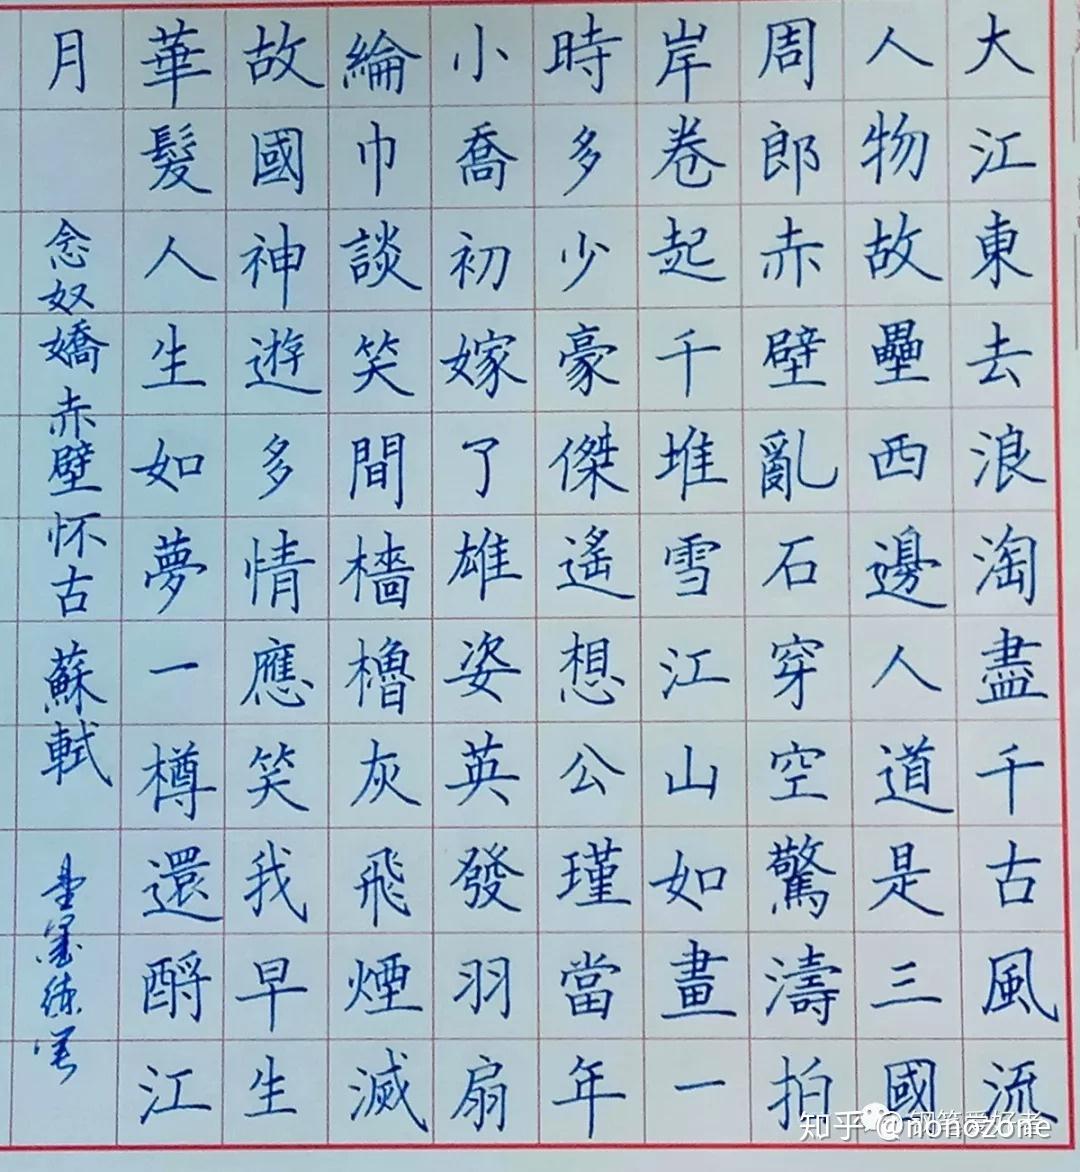 大江東去浪淘盡千古風流
人物故壘西邊人道是三國
周郎赤壁亂石穿空驚濤拍
岸卷起千堆雪江山如畫一
時多少豪傑遙想公瑾當年
小喬初嫁了雄姿英發羽扇
綸巾談笑間檣櫓灰飛煙滅
故國神遊多情應笑我早生
華髮人生如夢一樽還酹江
月
念奴嬌赤壁怀古 蘇軾
知乎 @nonozone
钢笔爱好者